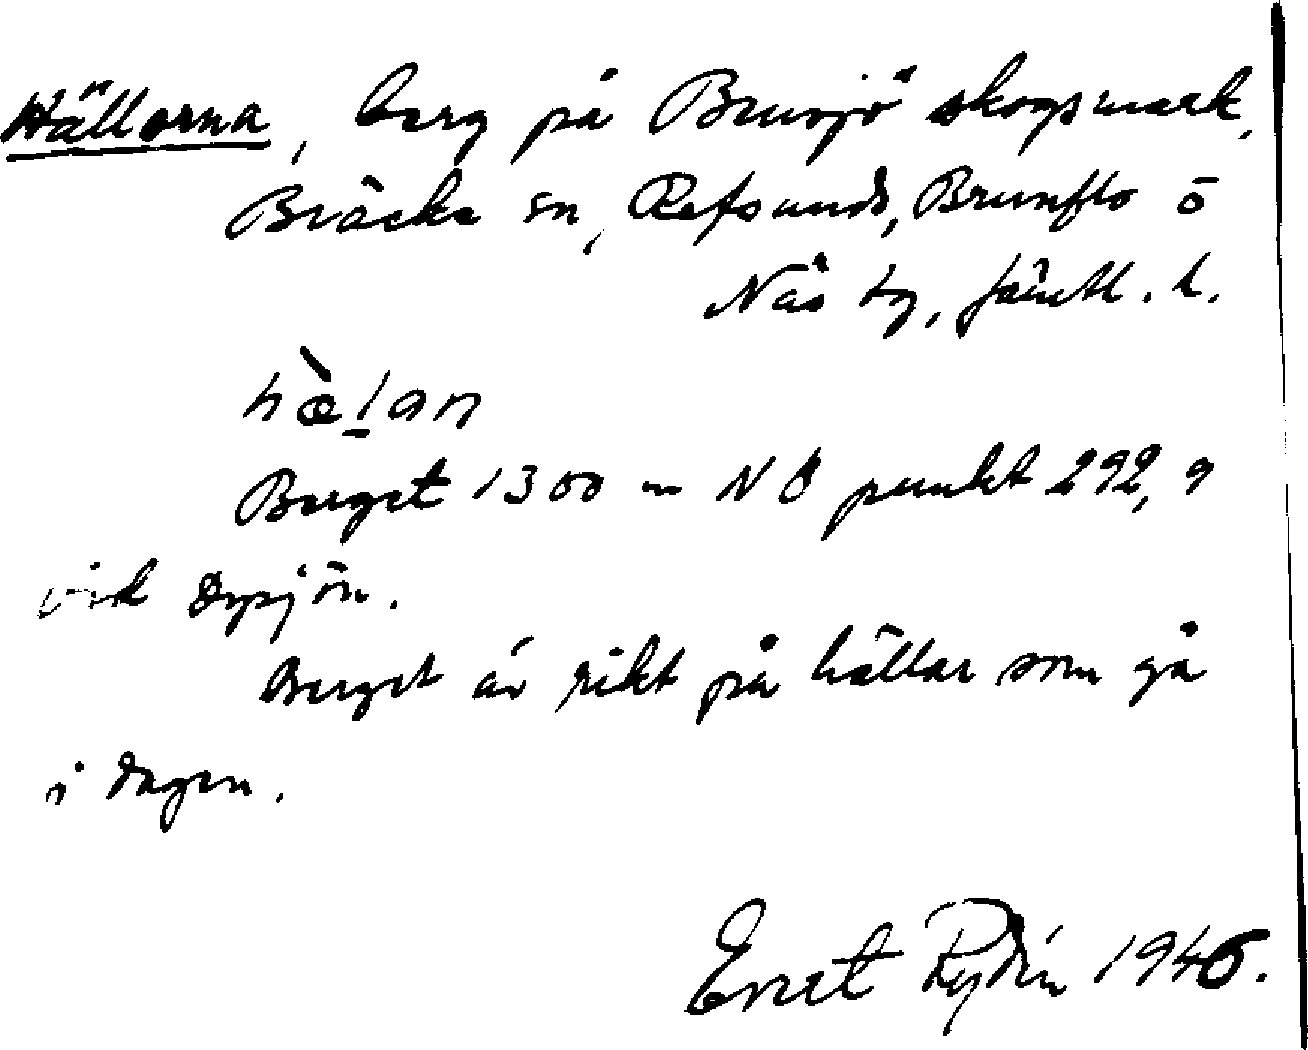 Hällorna, berg på Bensjö skogsmark,
Bräcke sn, Refsunds, Brunflo o
Näs tg, Jämtl. l.
hæ̀lan
Berget 1300 m NÖ punkt 292,9
vid Dypsjön.
Berget är rikt på hällar som gå
i dagen.
Enet Rydén 1946.